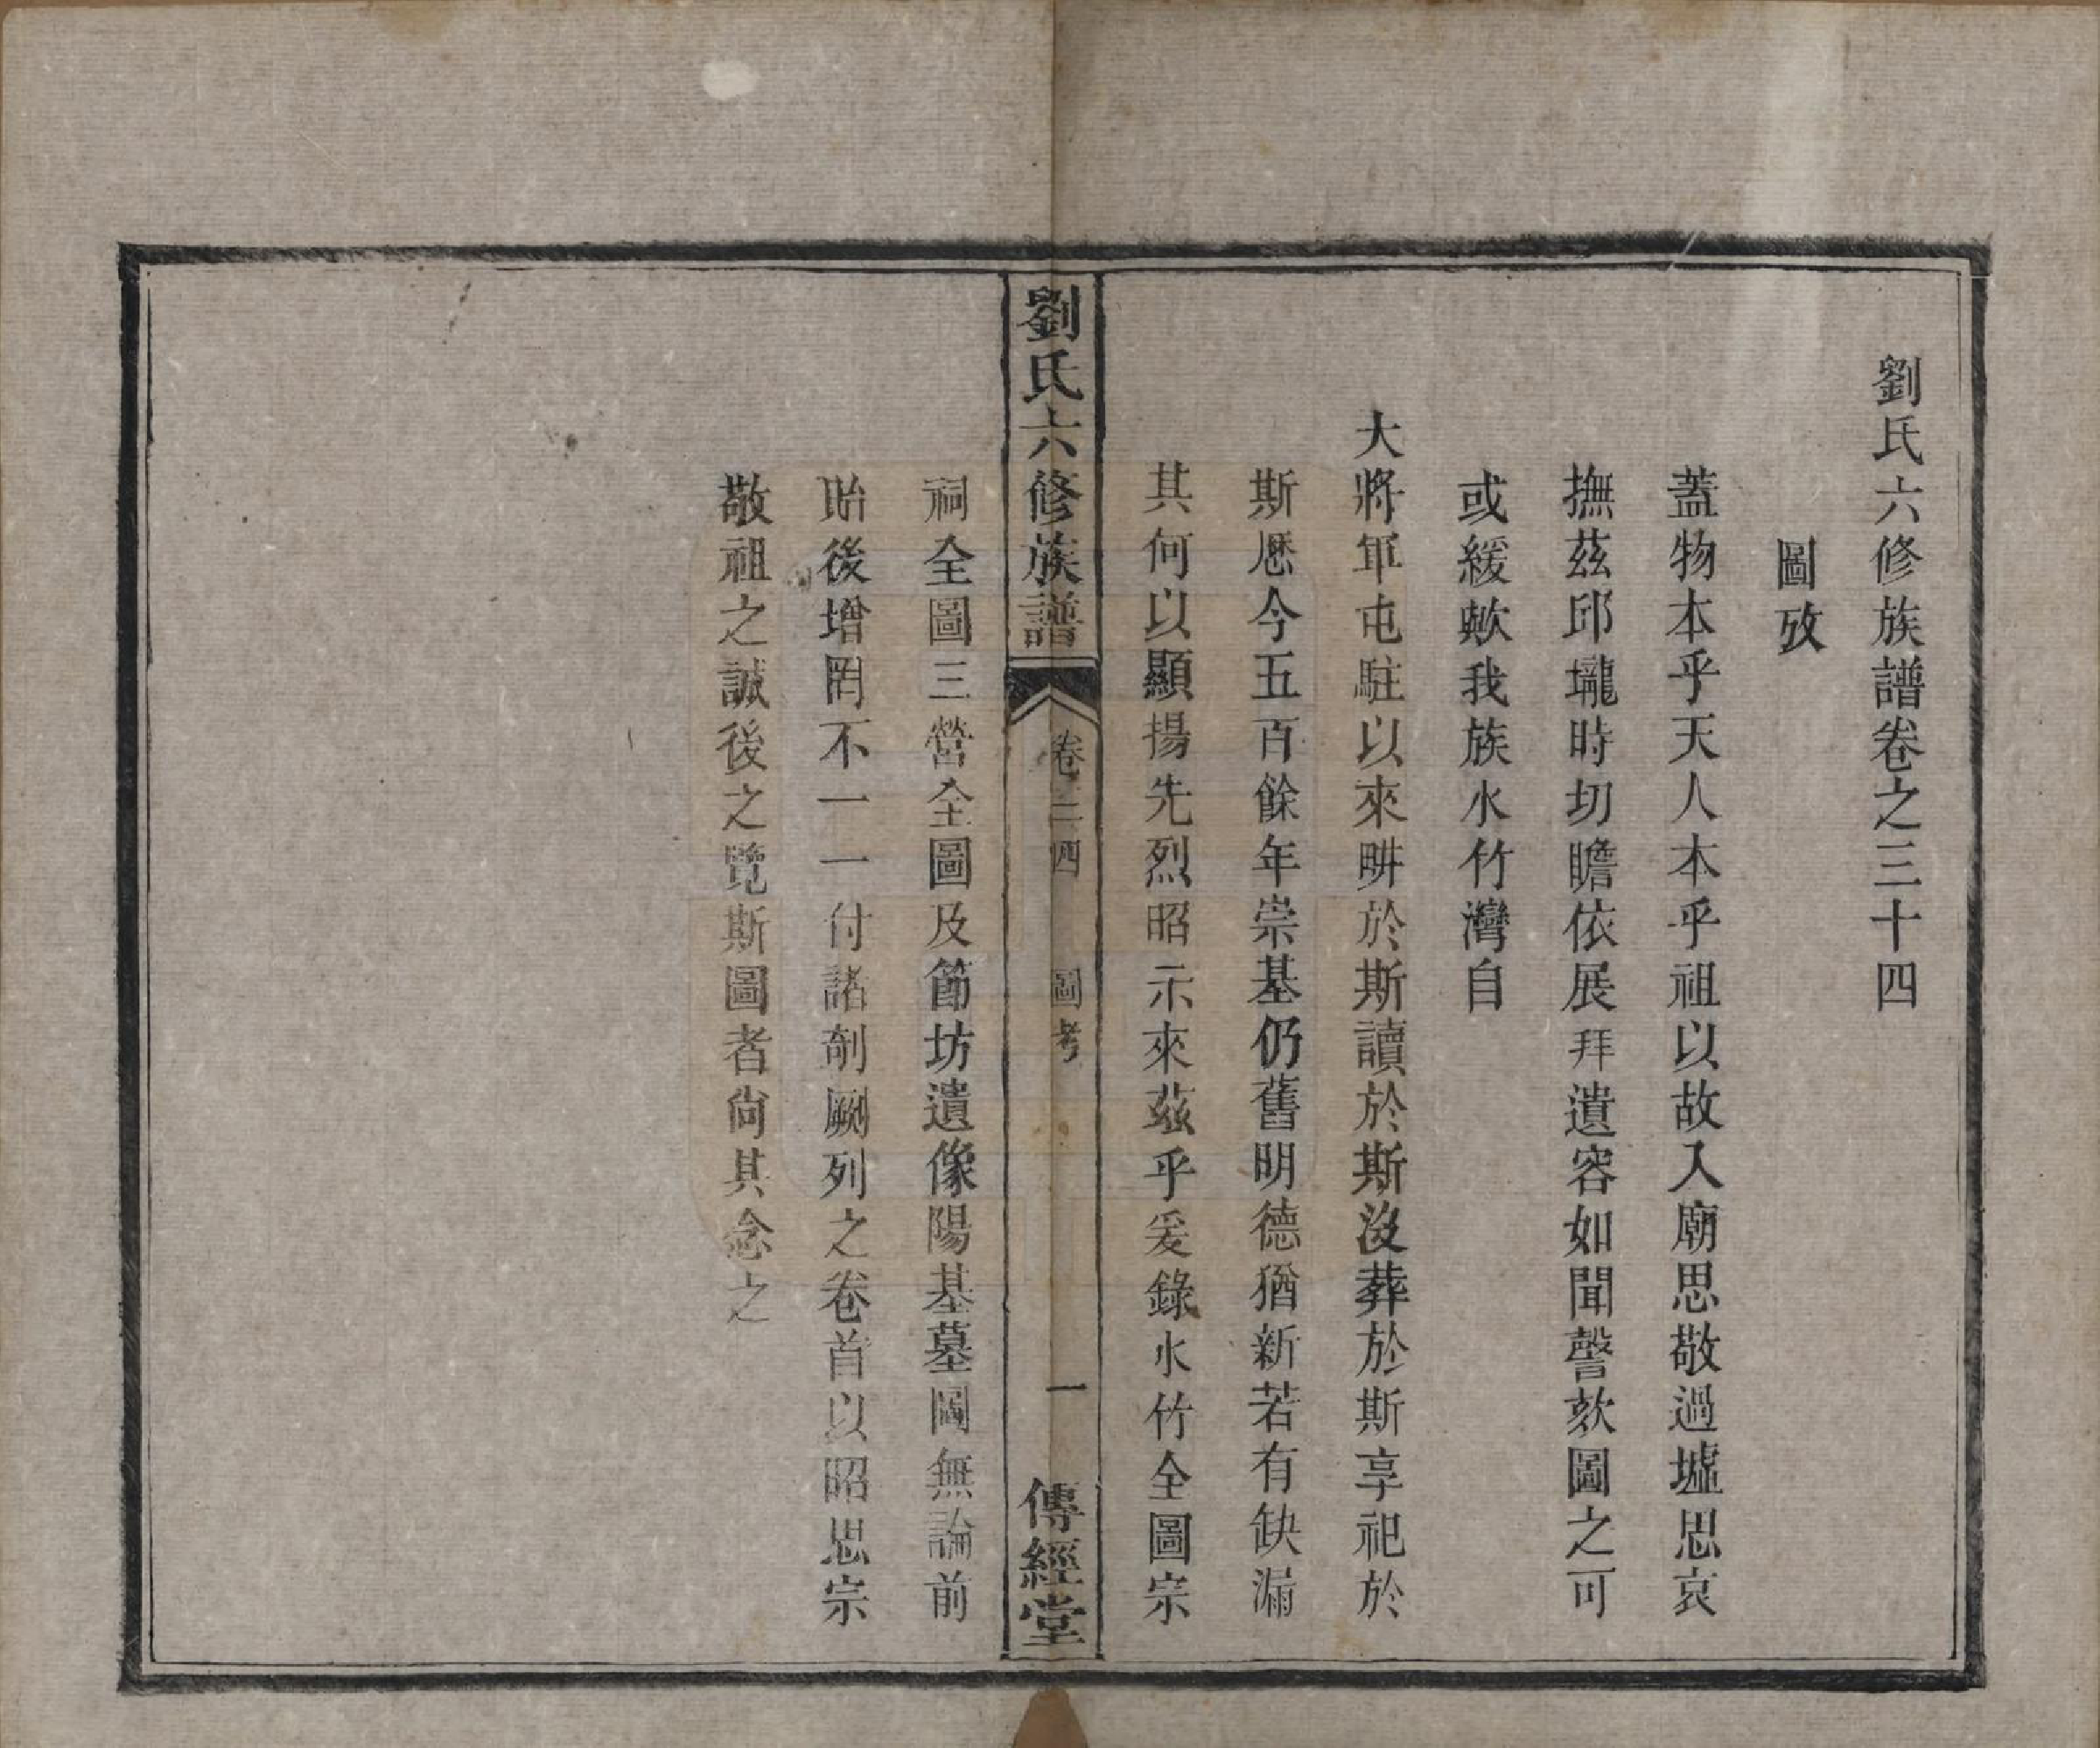 劉氏六修族譜卷之三十四
圖攷
蓋物本乎天人本乎祖以故入廟思敬過墟思哀
撫茲邱壠時切瞻依展拜遺容如聞謦欬圖之可
或緩歟我族水竹灣自
大將軍屯駐以來畊於斯讀於斯沒葬於斯享祀於
斯歷今五百餘年崇基仍舊明德猶新若有缺漏
其何以顯揚先烈昭示來茲乎爰錄水竹全圖宗
劉氏六修族譜
卷三四
圖考
一
傳經堂
祠全圖三營全圖及節坊遺像陽基墓圖無論前
貽後增罔不一一付諸剞劂列之卷首以昭思宗
敬祖之誠後之覽斯圖者尚其念之